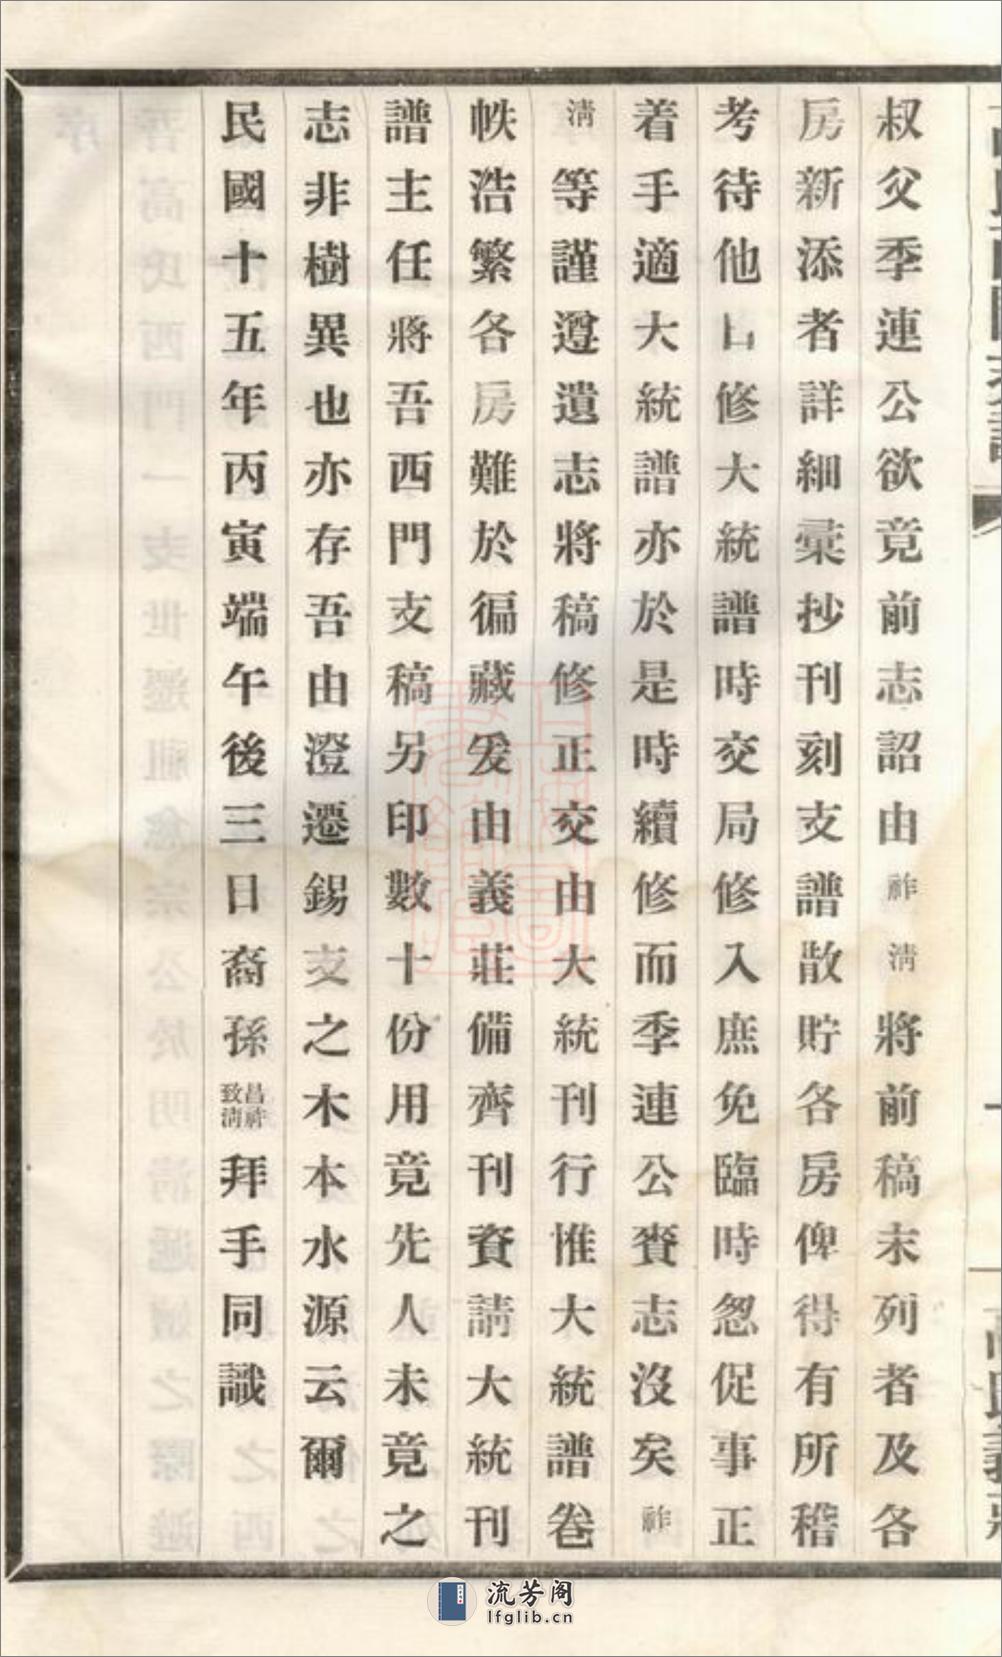 叔父季連公欲竟前志詔由祚淸將前稿未列者及各
房新添者詳細彙抄刊刻支譜散貯各房俾得有所稽
考待他日修大統譜時交局修入庶免臨時怱促事正
着手適大統譜亦於是時續修而季連公賫志沒矣祚
淸等謹遵遺志將稿修正交由大統刊行惟大統譜卷
帙浩繁各房難於徧藏爰由義莊備齊刊資請大統刊
譜主任將吾西門支稿另印數十份用竟先人未竟之
志非樹異也亦存吾由澄遷錫支之木本水源云爾
民國十五年丙寅端午後三日裔孫昌祚致淸拜手同識
流芳阁
lfglib.cn